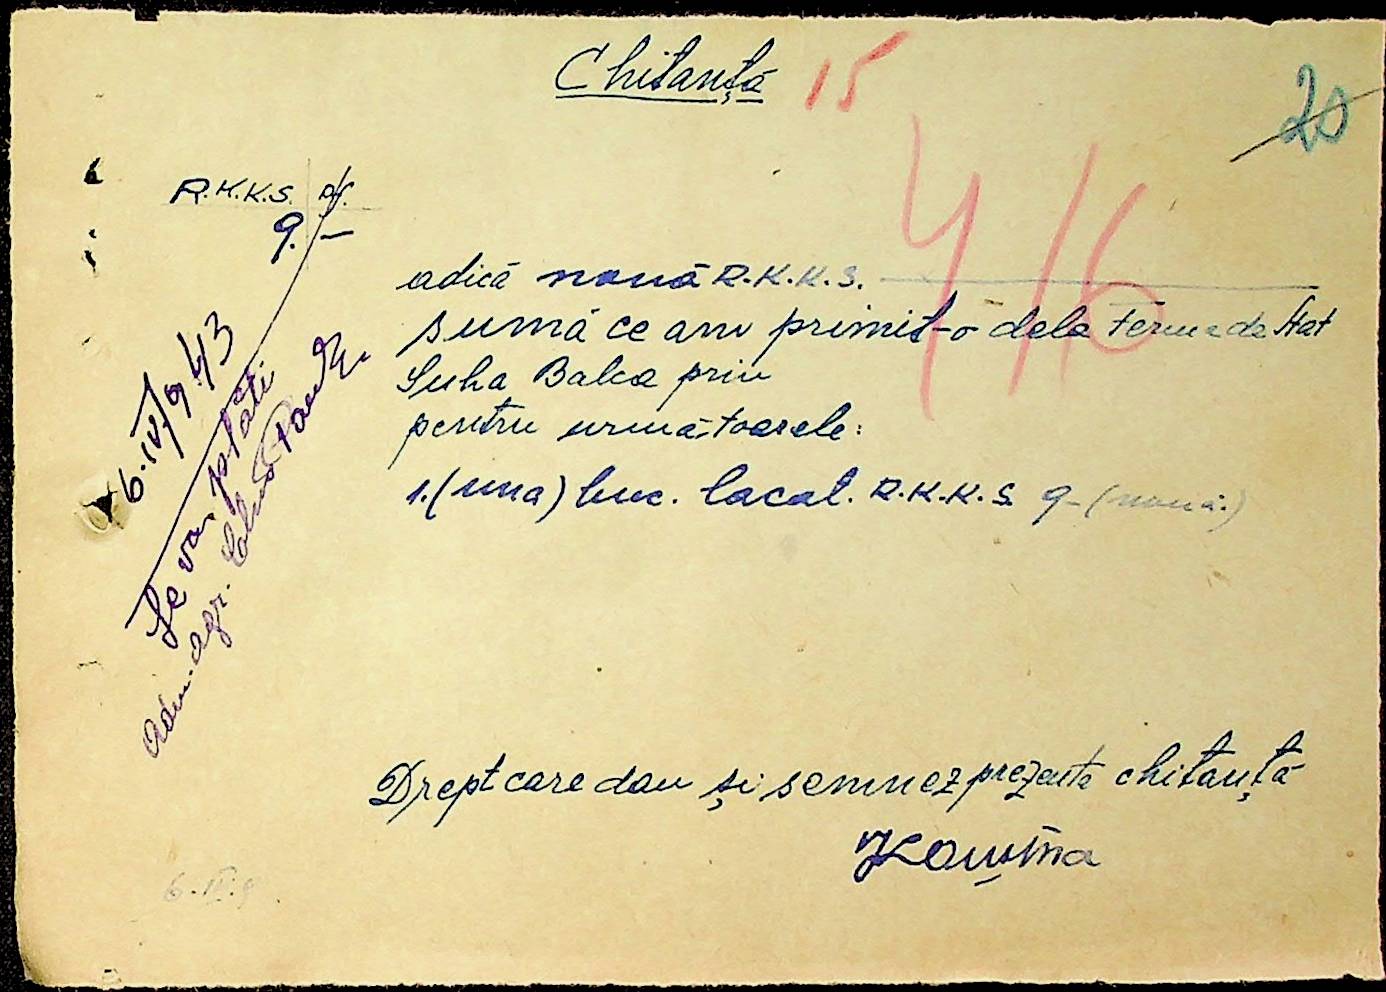 Chitanță 15
20
R.K.K.S. pf.
9. —
416
adică nouă R.K.K.S.
sumă ce am primit-o dela ferma de Stat
Suha Balca prin
pentru urmă,toarele:
1.(una) buc. lacat. R.K.K.S. 9-(nouă.)
6.IV/943
Se va plăti
Adm. agr.
Drept care dau și semnez prezenta chitanță
6.IV.9